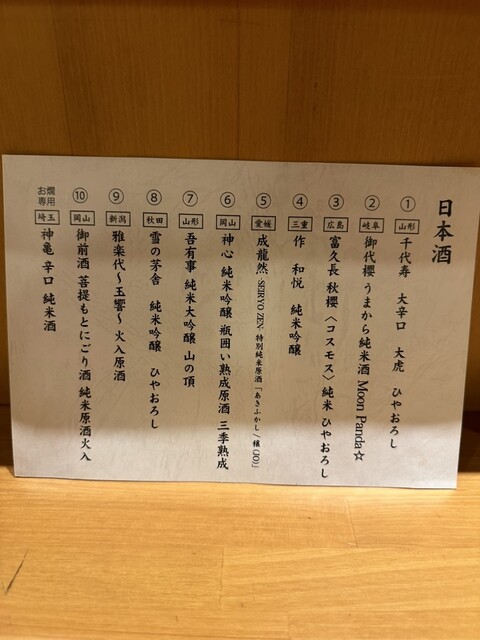 日本酒
① 山形 千代寿 大辛口 大虎 ひやおろし
② 岐阜 御代櫻 うまから純米酒 Moon Panda☆
③ 広島 富久長 秋櫻〈コスモス〉純米 ひやおろし
④ 三重 作 和悦 純米吟醸
⑤ 愛媛 成龍然 -SEIRYO ZEN- 特別純米原酒「あきふかし/穣(JO)」
⑥ 岡山 神心 純米吟醸 瓶囲い熟成原酒 三季熟成
⑦ 山形 吾有事 純米大吟醸 山の頂
⑧ 秋田 雪の茅舎 純米吟醸 ひやおろし
⑨ 新潟 雅楽代〜玉響〜 火入原酒
⑩ 岡山 御前酒 菩提もとにごり酒 純米原酒火入
お燗専用 埼玉 神亀 辛口 純米酒